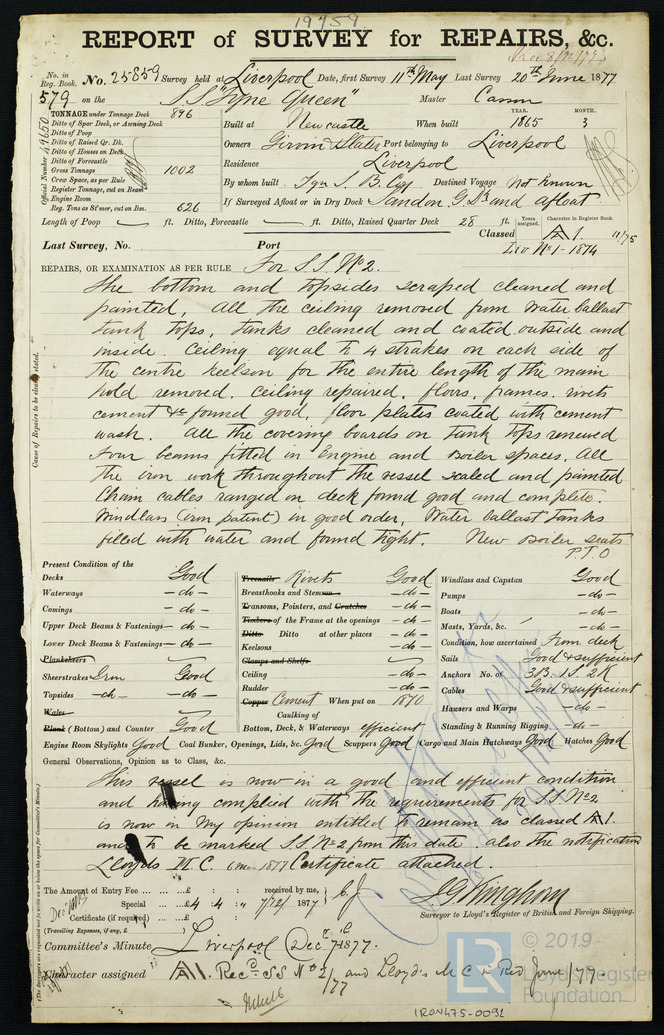 19759
REPORT of SURVEY for REPAIRS, &c.
No. in Reg. Book. No. 25859 Survey held at Liverpool Date, first Survey 11th May Last Survey 20th June 1877
579 on the S.S. "Tyne Queen" Master
TONNAGE under Tonnage Deck 896
Ditto of Spar Deck, or Awning Deck
Ditto of Poop
Ditto of Raised Qr. Dk.
Ditto of Houses on Deck
Ditto of Forecastle
Gross Tonnage 1002
Crew Space, as per Rule
Register Tonnage, cut on Beam
Engine Room
Reg. Tons as St'mer, cut on Bm. 626
Official Number 49650
YEAR. MONTH.
Built at Newcastle When built 1865 3
Owners Port belonging to Liverpool
Residence Liverpool
By whom built Destined Voyage Not known
If Surveyed Afloat or in Dry Dock Sandon G. Dk and afloat
Length of Poop ft. Ditto, Forecastle ft. Ditto, Raised Quarter Deck 28 ft. Years assigned. Character in Register Book.
Classed A 1. 11/75
Last Survey, No. Port Liv No 1 - 1874
REPAIRS, OR EXAMINATION AS PER RULE For S.S. No 2.
The bottom and topsides scraped cleaned and
painted, All the ceiling removed from Water ballast
tank tops, tanks cleaned and coated outside and
inside. Ceiling equal to 4 strakes on each side of
the centre keelson for the entire length of the main
hold removed. Ceiling repaired, floors, frames, rivets
cement &c found good, floor plates coated with cement
wash. All the covering boards on tank tops renewed
Four beams fitted in Engine and Boiler spaces. All
the iron work throughout the vessel scaled and painted
Chain cables ranged on deck found good and complete.
Windlass (iron patent) in good order, Water ballast tanks
filled with water and found tight. New Boiler seats
P.T.O
Cause of Repairs to be clearly stated.
Present Condition of the
Decks Good
Waterways - do -
Comings - do -
Upper Deck Beams & Fastenings - do -
Lower Deck Beams & Fastenings - do -
Planksheers
Sheerstrakes Iron Good
Topsides - do - - do -
Wales
Plank (Bottom) and Counter Good
Treenails Rivets Good
Breasthooks and Stemson - do -
Transoms, Pointers, and Crutches - do -
Timbers of the Frame at the openings - do -
Ditto Ditto at other places - do -
Keelsons - do -
Clamps and Shelfs
Ceiling - do -
Rudder - do -
Copper Cement When put on 1870
Caulking of
Bottom, Deck, & Waterways efficient
Windlass and Capstan Good
Pumps - do -
Boats - do -
Masts, Yards, &c. - do -
Condition, how ascertained From deck
Sails Good & sufficient
Anchors No. of 3B. 1S. 2K
Cables Good & sufficient
Hawsers and Warps - do -
Standing & Running Rigging - do -
Engine Room Skylights Good Coal Bunker, Openings, Lids, &c. Good Scuppers Good Cargo and Main Hatchways Good Hatches Good
General Observations, Opinion as to Class, &c.
This vessel is now in a good and efficient condition
and having complied with the requirements for S.S. No 2
is now in my opinion entitled to remain as classed A 1.
and to be marked S.S No 2 from this date also the notification
Lloyds M.C. 6 mo 1877 Certificate attached.
The Amount of Entry Fee ... £ : : received by me,
Special ... £ 4 : 4 : 7/12/ 1877
Certificate (if required) ... £ : :
(Travelling Expenses, if any, £
Surveyor to Lloyd's Register of British and Foreign Shipping.
Committee's Minute Liverpool Decr 7 1877.
Character assigned A 1. Recd. SS No 2 /77 and Lloyd's M C Red June/77
LR
© 2019
Lloyd's Register
Foundation
IRON475-0091